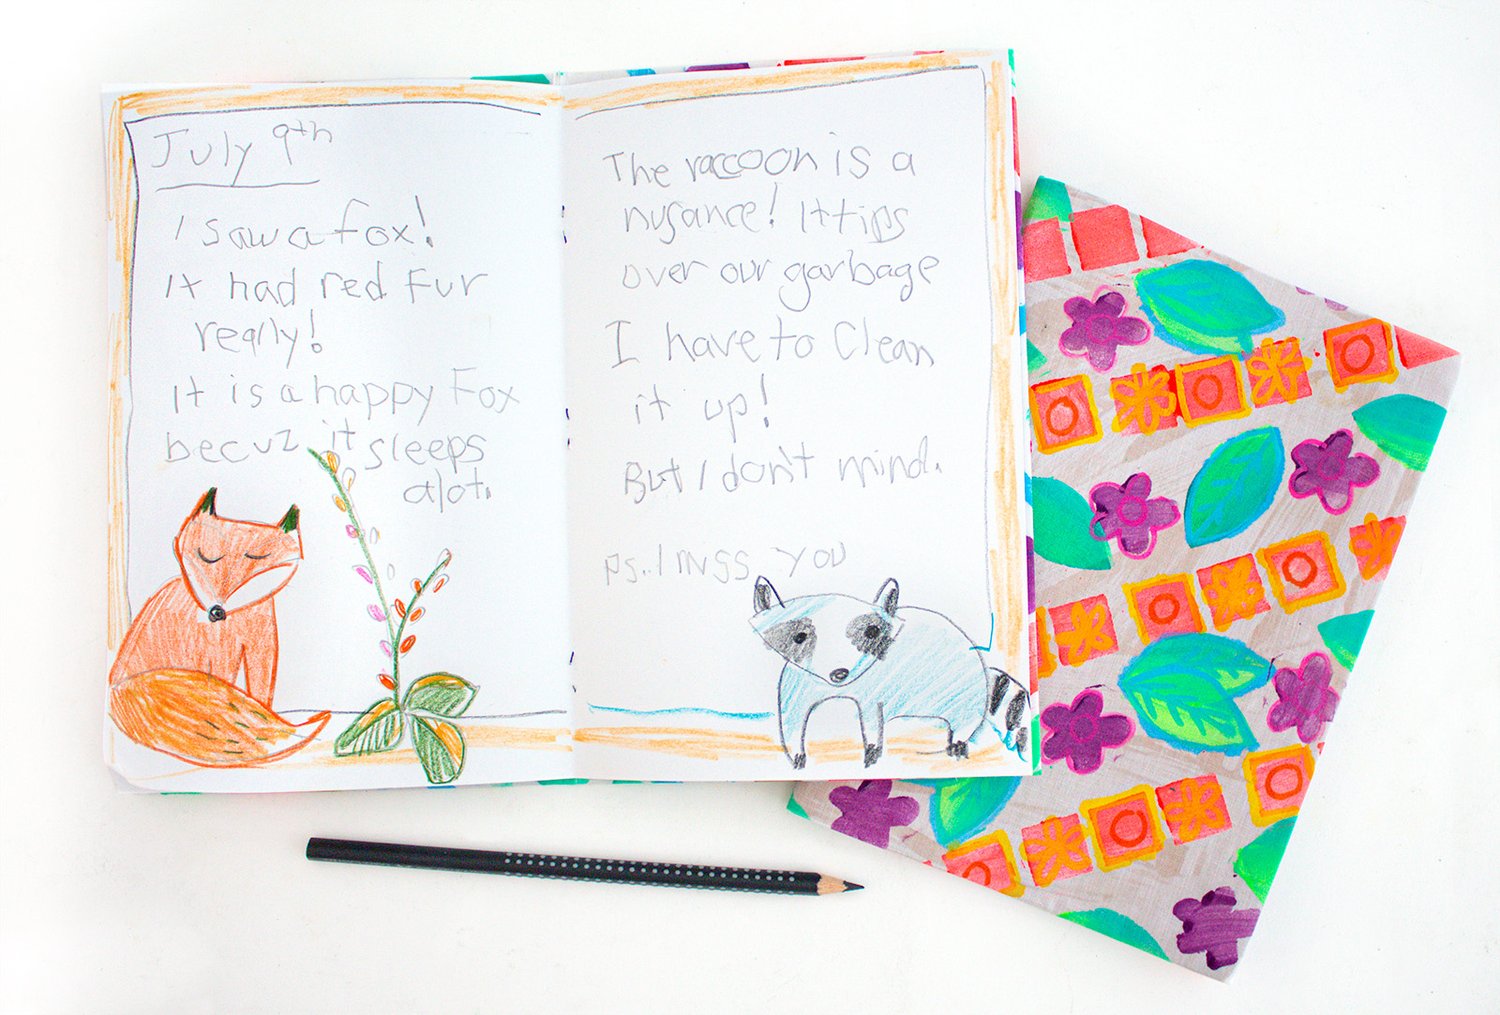 July 9th
I saw a fox!
It had red Fur
really!
It is a happy Fox
becuz it sleeps
alot.
The raccoon is a
nusance! It tips
over our garbage
I have to Clean
it up!
But I don't mind.
ps.. I miss you